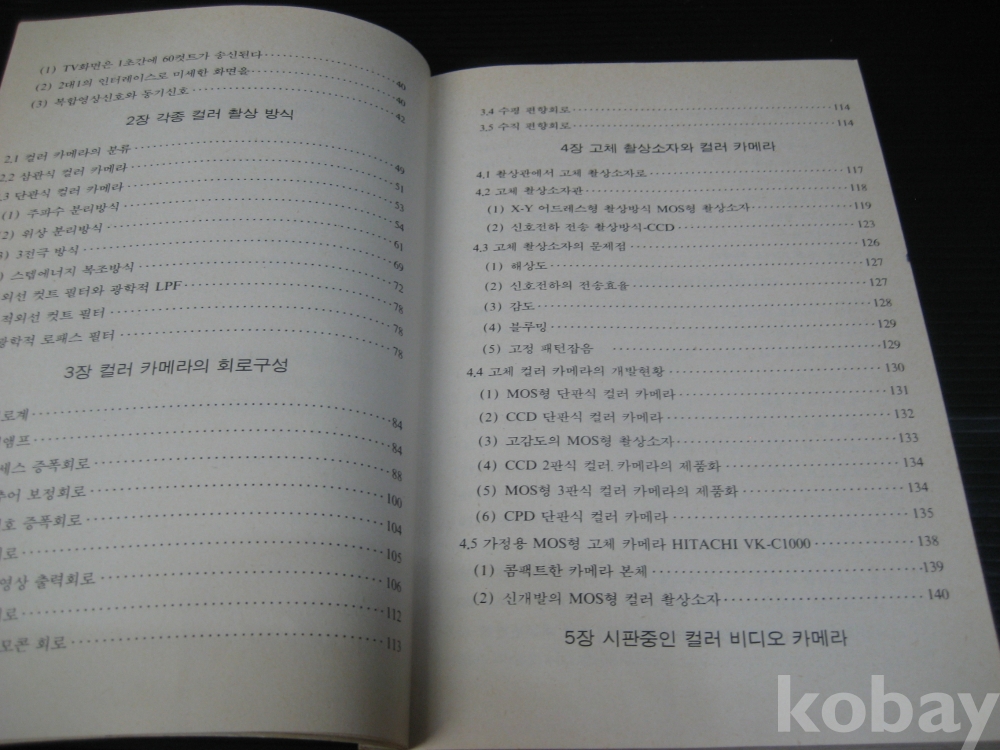 (1) TV화면은 1초간에 60컷트가 송신된다 40
(2) 2대1의 인터레이스로 미세한 화면을 40
(3) 복합영상신호와 동기신호 42
2장 각종 컬러 촬상 방식
2.1 컬러 카메라의 분류 49
2.2 삼관식 컬러 카메라 51
.3 단관식 컬러 카메라 53
(1) 주파수 분리방식 54
2) 위상 분리방식 61
) 3전극 방식 69
) 스텝에너지 복조방식 72
외선 컷트 필터와 광학적 LPF 78
적외선 컷트 필터 78
광학적 로패스 필터 78
3장 컬러 카메라의 회로구성
로계 84
앰프 84
세스 증폭회로 88
보정회로 100
호 증폭회로 104
로 105
영상 출력회로 106
로 112
모콘 회로 113
3.4 수평 편향회로 114
3.5 수직 편향회로 114
4장 고체 촬상소자와 컬러 카메라
4.1 촬상관에서 고체 촬상소자로 117
4.2 고체 촬상소자판 118
(1) X-Y 어드레스형 촬상방식 MOS형 촬상소자 119
(2) 신호전하 전송 촬상방식-CCD 123
4.3 고체 촬상소자의 문제점 126
(1) 해상도 127
(2) 신호전하의 전송효율 127
(3) 감도 128
(4) 블루밍 129
(5) 고정 패턴잡음 129
4.4 고체 컬러 카메라의 개발현황 130
(1) MOS형 단판식 컬러 카메라 131
(2) CCD 단판식 컬러 카메라 132
(3) 고감도의 MOS형 촬상소자 133
(4) CCD 2판식 컬러 카메라의 제품화 134
(5) MOS형 3판식 컬러 카메라의 제품화 134
(6) CPD 단판식 컬러 카메라 135
4.5 가정용 MOS형 고체 카메라 HITACHI VK-C1000 138
(1) 콤팩트한 카메라 본체 139
(2) 신개발의 MOS형 컬러 촬상소자 140
5장 시판중인 컬러 비디오 카메라
kobay